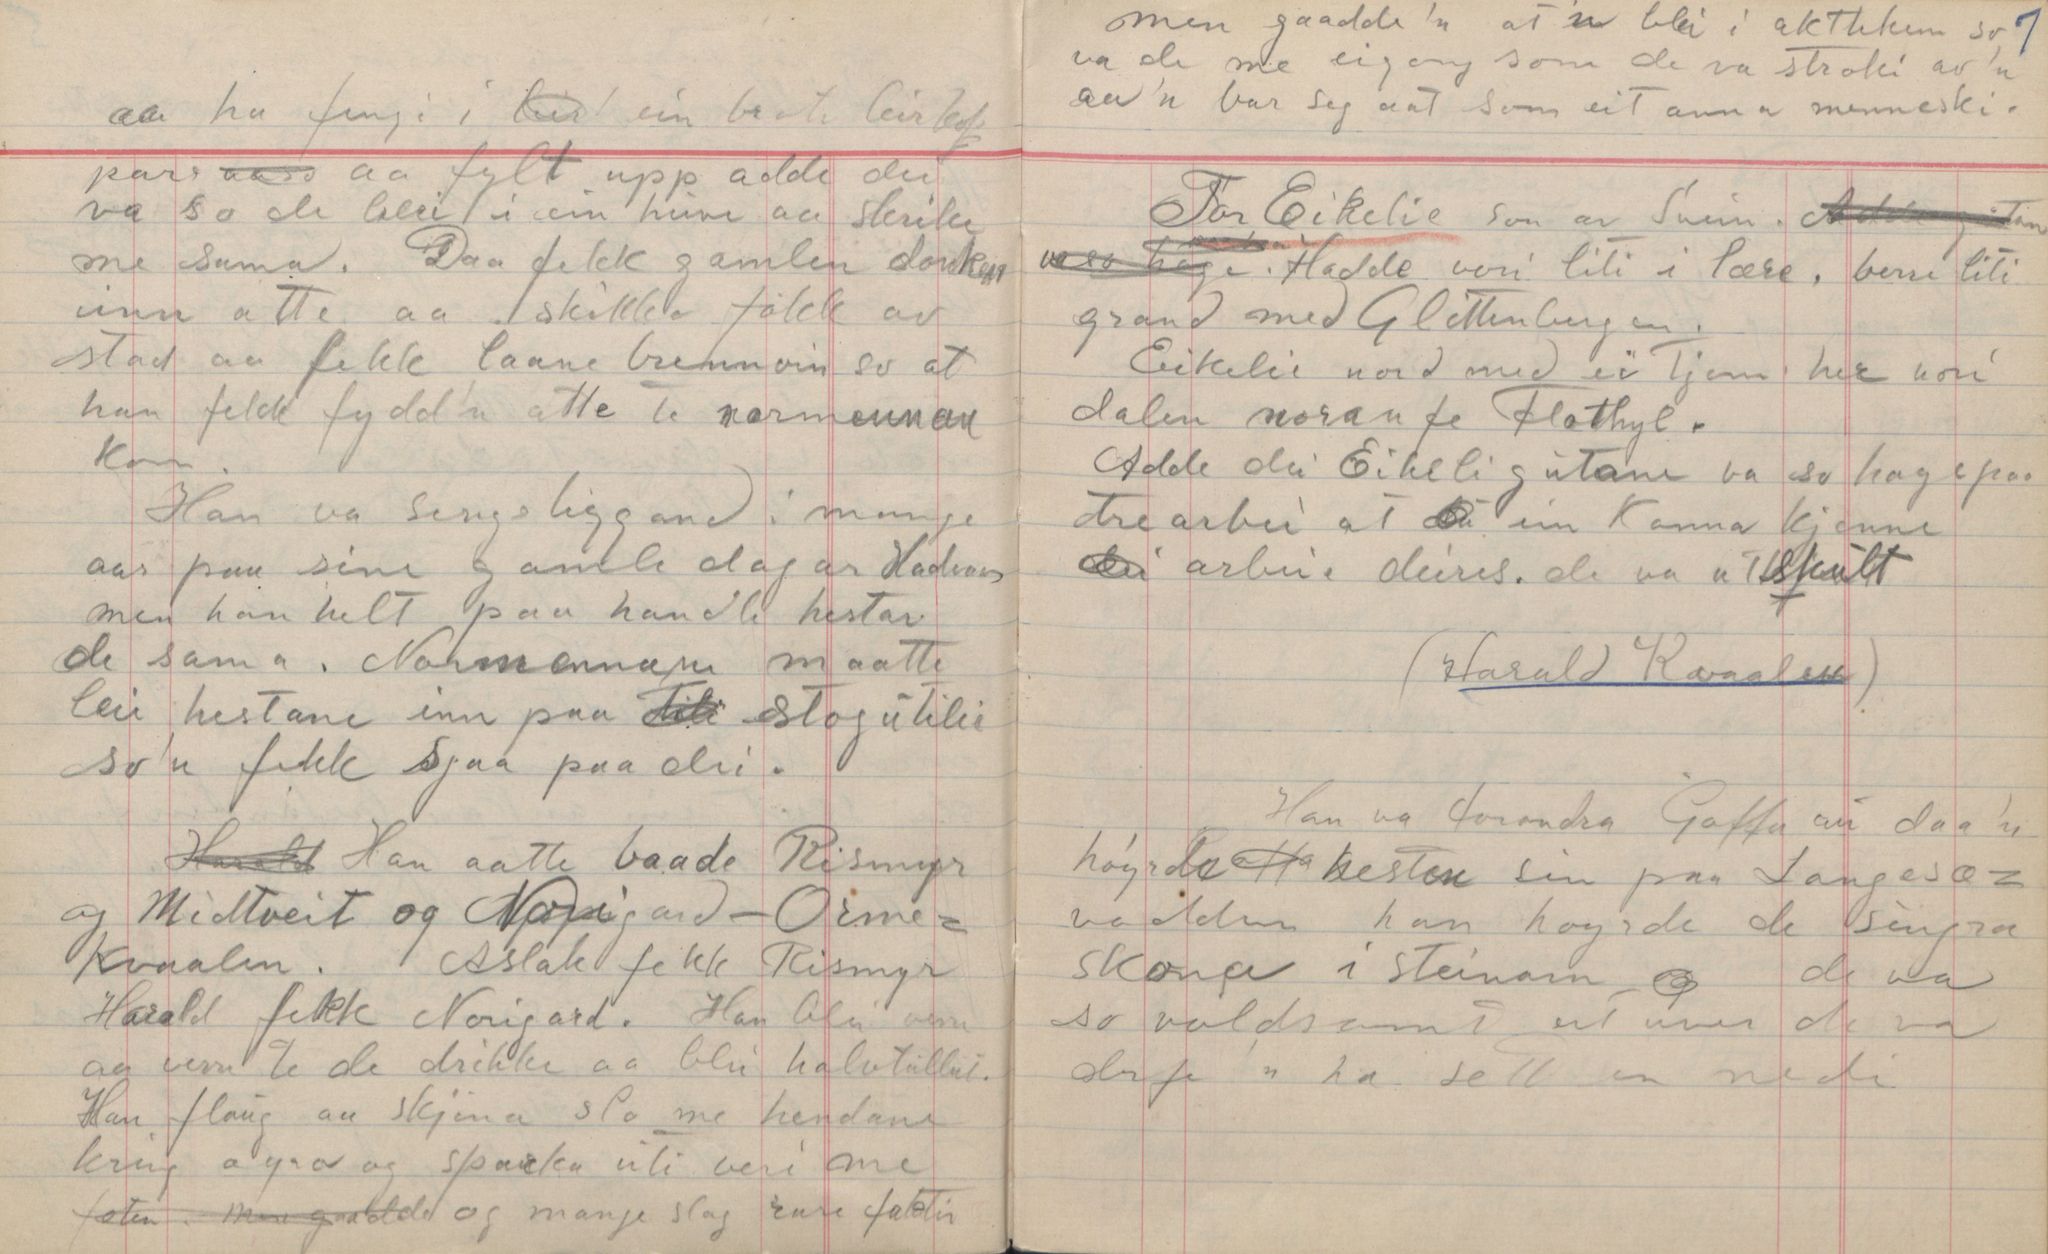 aa ha fengi i ein brote leir
par aa fylt upp adde dei
va so de blei i ein hive aa skrike
me sama. Daa fekk gamlen donken
inn atte aa skikka fokk av
stad aa fekk laane brennvin so at
han fekk fydd'n atte te normennan
kom.
Han va sengeliggand i mange
aar paa sine gamle dagar
men han helt paa handle hestar
de sama. Normennane maatte
lei hestane inn paa stogutilei
so'n fekk sjaa paa dei.
Harald Han aatte baade Rismyr
og Midtveit og Norigard - Orme=
kvaalen. Aslak fekk Rismyr
Harald fekk Norigard. Han blei
aa vera te de drikke aa blei halvtullut.
Han flaug aa skjena slo me hendane
kring øyro og sparka uti veri me
føten. men gaadde og mange slag rare fakter
men gaadde'n at'n blei i akttekun so 7
va de me eigong som de va stroki av'n
aa'n bar seg aat som eit anna menneski.
Tor Eikelie son av Svein.
va so hage. Hadde vori liti i lære, berre liti
grand med Glittenbergen.
Eikelie nord med ei Tjønn her nori
dalen noran fe Flothyl.
Adde dei Eikeligutane va so hage paa
trearbei at ein kanna kjenne
dei arbeie deires. de va utskult
(Harald Kvaalen)
Han va forandra Gaffa au daa'n
høyrde hesten sin paa Langesæ=
vadden han høyrde de singra
skone i steinam de va
so valdsamt eit uver de va
'n ha sett en nedi